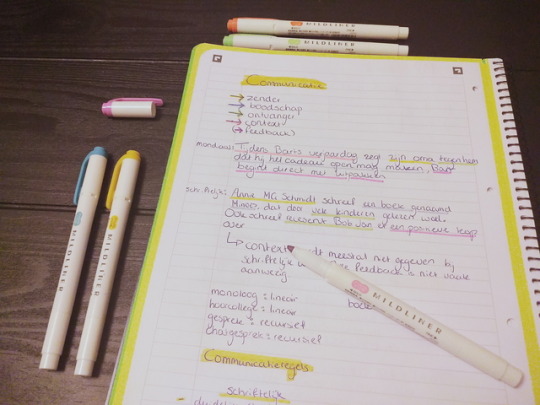 MILDLINER
MILDLINER
Communicatie
→ zender
→ boodschap
→ ontvanger
→ context
(→ feedback)
mondeling: Tijdens Bart's verjaardag zegt zijn oma tegen hem
dat hij het cadeau open mag maken. Bart
begint direct met uitpakken
schriftelijk: Annie MG Schmidt schreef een boek genaamd
Minoes, dat door vele kinderen gelezen werd.
Ook schreef recensent Bob van er een positieve
over
↳ context meestal niet gegeven bij
schriftelijke feedback is niet vaak
aanwezig
monoloog = lineair
hoorcollege = lineair
gesprek = recursief
chatgesprek = recursief
Communicatieregels
schriftelijk
MILDLINER
MILDLINER
MILDLINER